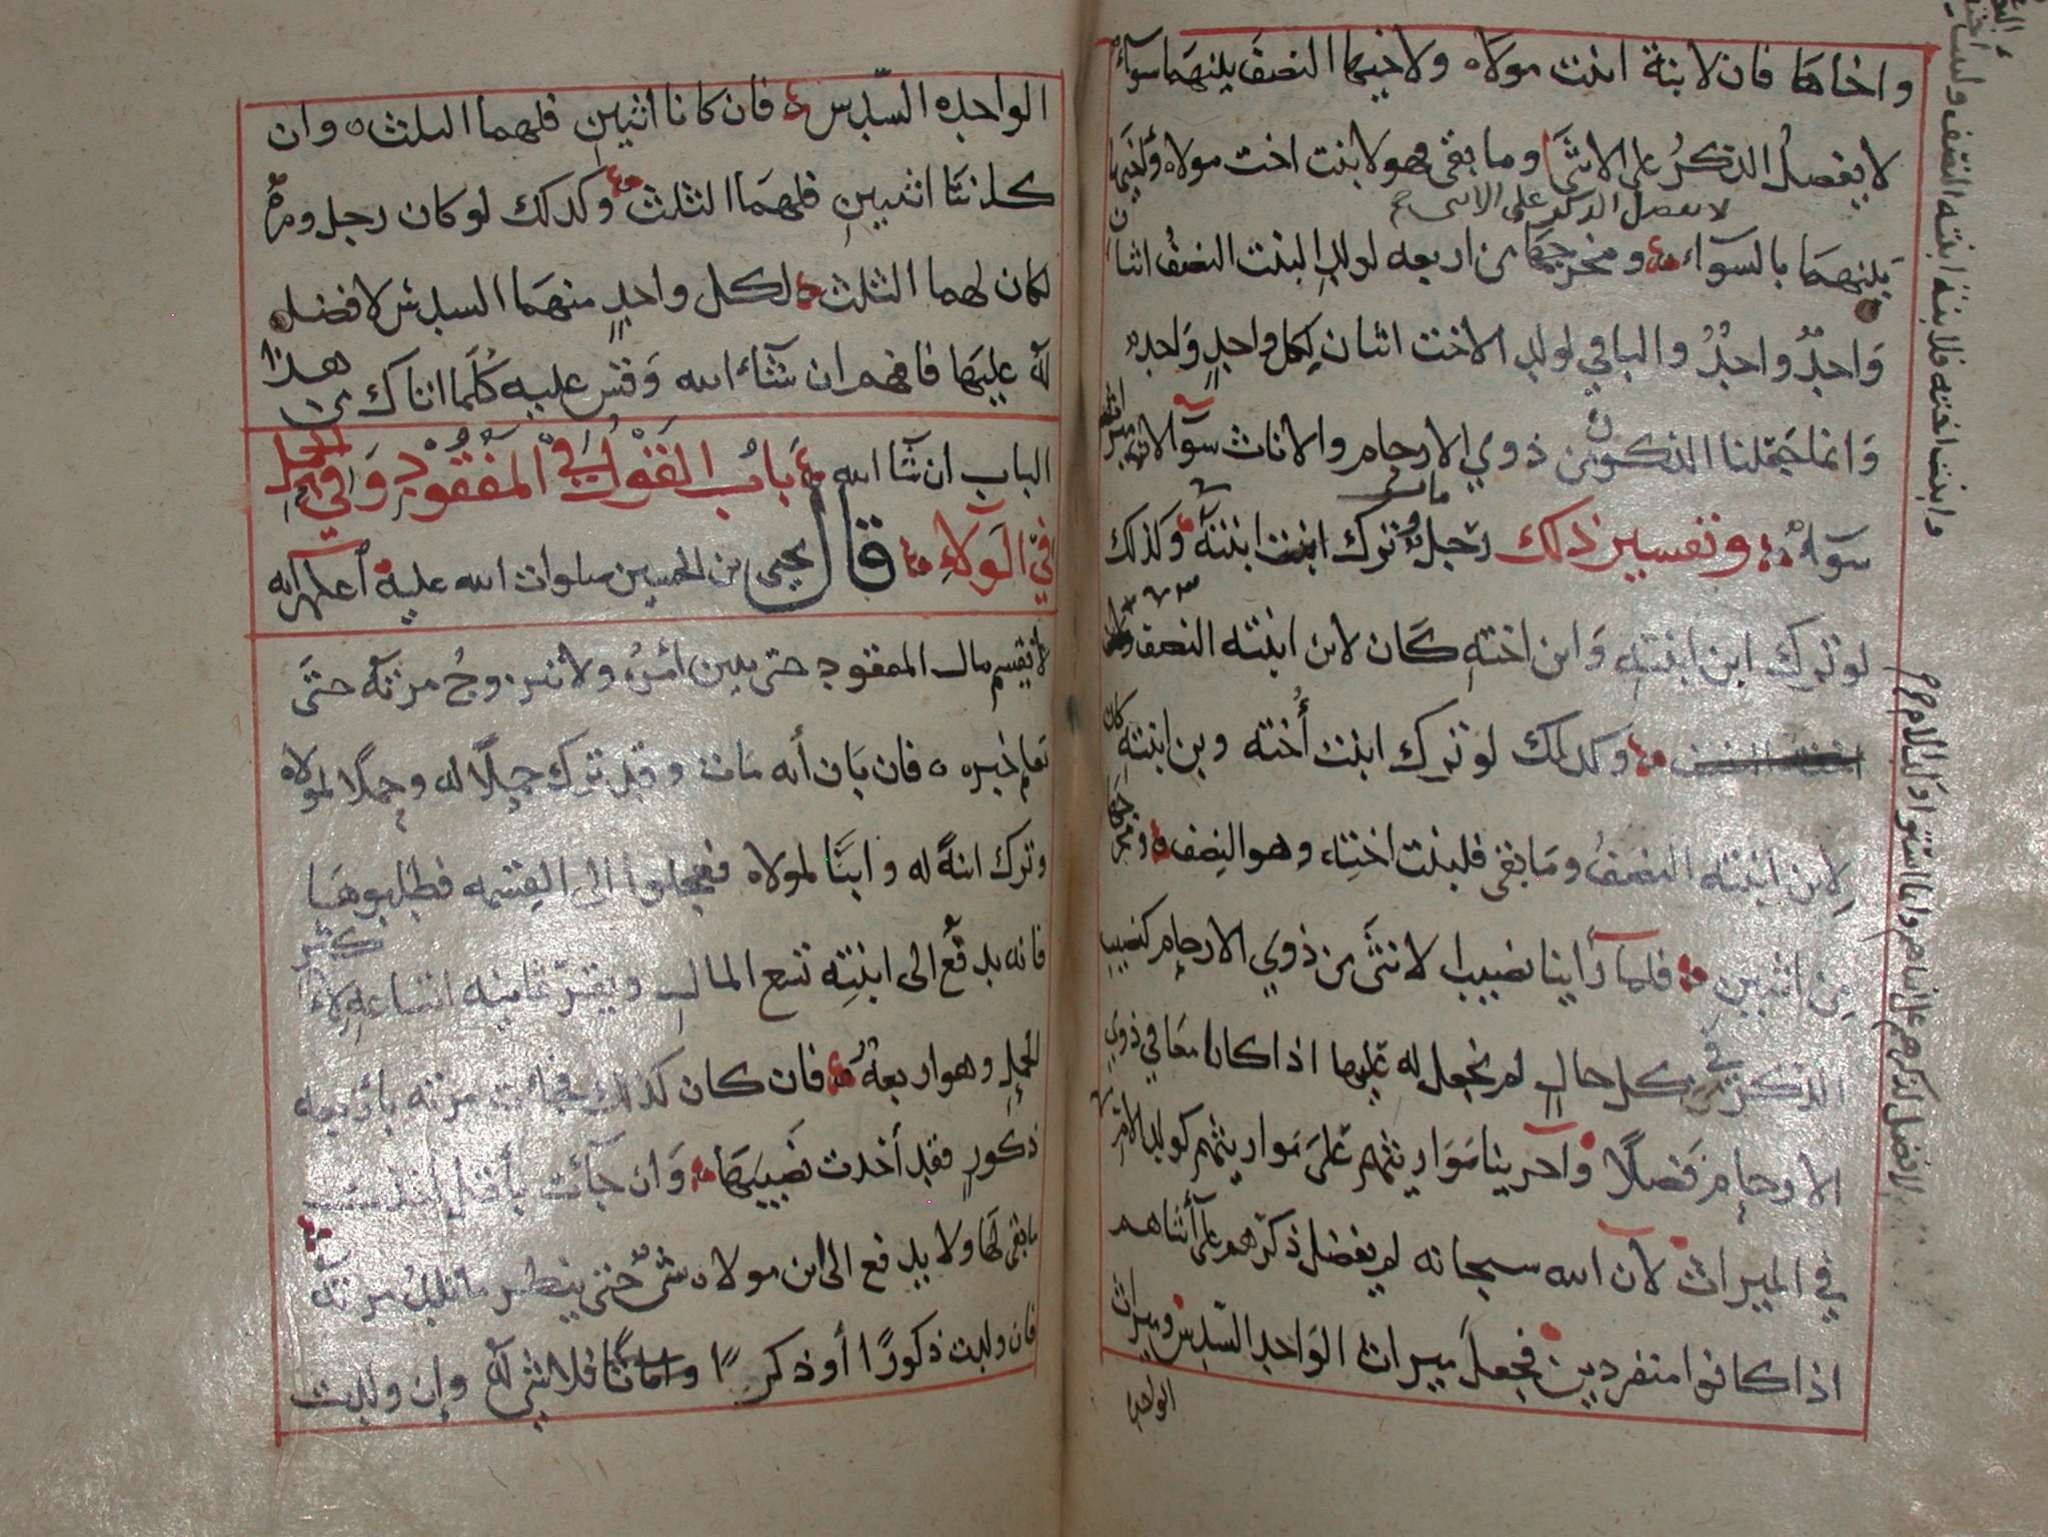 واخاها فان لابنة ابنت مولاه ولاخيها النصف بينهما سوآء
لا يفضل الذكر على الانثى وما بقى فهو لابنت اخت مولاه ولاخيها
لا يفضل الذكر على الانثى
بينهما بالسوآء ومخرجها من اربعه لولد البنت النصف اثنان
واحدٌ واحدٌ والباقي لولد الاخت اثنان لكل واحدٍ واحده
وانما جعلنا الذكور من ذوي الارحام والاناث سوآ لان
سوآء وتفسير ذلك رجل مات وترك ابنت ابنته وكذلك
لو ترك ابن ابنته وابن اخته كان لابن ابنته النصف
وكذلك لو ترك ابنت أخته وبن ابنته كان
لابن ابنته النصفُ وما بقى فلبنت اخته وهو النصف ومخرجها
من اثنين فلما رأينا نصيب الانثى من ذوي الارحام كنصيب
الذكر في كل حال لم نجعل له عليها اذا كانا معا في ذوي
الارحام فضلاً وآجرينا مواريثهم على مواريثهم كولد الام
في الميراث لأن الله سبحانه لم يفضل ذكرهم على أنثاهم
اذا كانوا منفردين فجعل ميراث الواحد السدس وميراث
الواحده
وابنت اخته فلابنة ابنته النصف
لا فضل لذكرهم على انثاهم وانما استووا ولد الام
الواحده السدس فان كانا اثنين فلهما الثلث وان
كانتا اثنتين فلهما الثلث وكذلك لو كان رجل ومره
لكان لهما الثلث لكل واحدٍ منهما السدس لا فضل
له عليها فافهم ان شآء الله وقس عليه كلما اتاك من هذا
الباب ان شآ الله باب القول في المفقود وفي الحمل
في الولاء قال يحيى بن الحسين صلوات الله عليه أعلم انه
لا يقسم مال المفقود حتى يبين امره ولا تزوج مرته حتى
تعلم خبره فان بان أنه مات وقد ترك حملاً له وحملاً لمولاه
وترك ابنةً له وابنًا لمولاه فعجلوا الى القسمه فطلبوها
فانه يدفع الى ابنته تسع المال ويقر ثمانية اتساعه لاكثر
الحمل وهو اربعة فان كان كذلك فجائت مرته بأربعه
ذكورٍ فقد أخذت نصيبها وان جآئت بأقل
ما بقى لها ولا يدفع الى ابن مولاه شئ حتى ينظر ما تلد مرته
فان ولدت ذكورًا أو ذكرًا فلا شئ له وإن ولدت